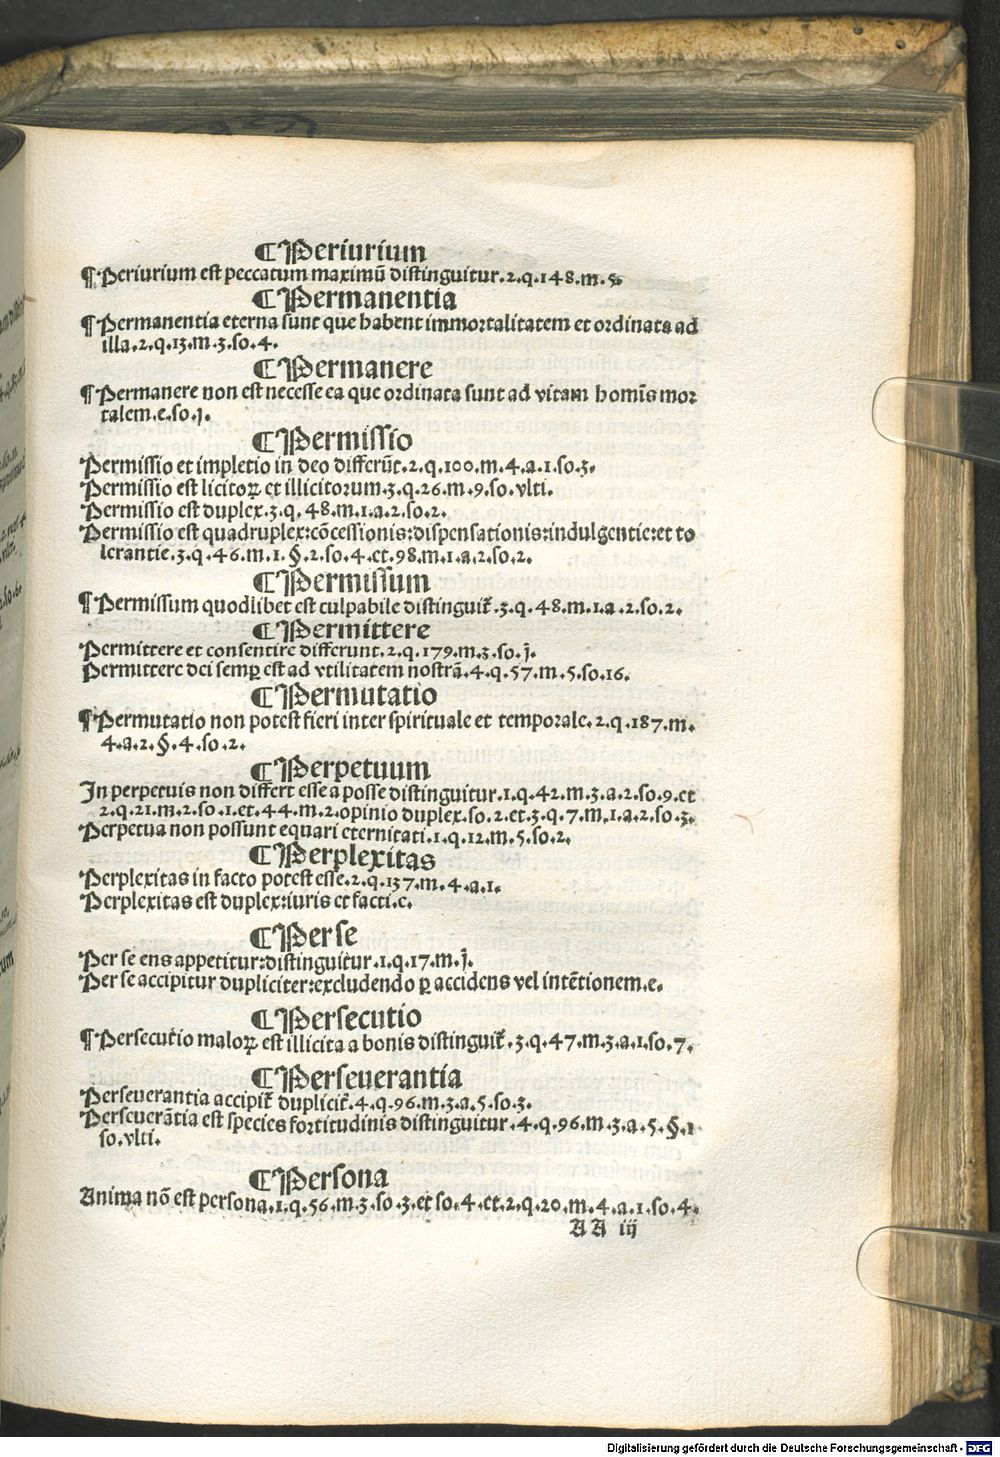 ¶ Periurium
¶ Periurium est peccatum maximū distinguitur.2.q.148.m.5.
¶ Permanentia
¶ Permanentia eterna sunt que habent immortalitatem et ordinata ad
illa.2.q.13.m.3.so.4.
¶ Permanere
¶ Permanere non est necesse ea que ordinata sunt ad vitam homīs mor
talem.e.so.j.
¶ Permissio
Permissio et impletio in deo differūt.2.q.100.m.4.a.1.so.3.
Permissio est licitoꝝ et illicitorum.3.q.26.m.9.so.vlti.
Permissio est duplex.3.q.48.m.1.a.2.so.2.
Permissio est quadruplex:cōcessionis:dispensationis:indulgentie:et to
lerantie.3.q.46.m.1.§.2.so.4.et.98.m.1.a.2.so.2.
¶ Permissum
¶ Permissum quodlibet est culpabile distinguit᷑.3.q.48.m.1.a.2.so.2.
¶ Permittere
Permittere et consentire differunt.2.q.179.m.3.so.j.
Permittere dei semꝑ est ad vtilitatem nostrā.4.q.57.m.5.so.16.
¶ Permutatio
¶ Permutatio non potest fieri inter spirituale et temporale.2.q.187.m.
4.a.2.§.4.so.2.
¶ Perpetuum
In perpetuis non differt esse a posse distinguitur.1.q.42.m.3.a.2.so.9.et
2.q.21.m.2.so.1.et.44.m.2.opinio duplex.so.2.et.3.q.7.m.1.a.2.so.3.
Perpetua non possunt equari eternitati.1.q.12.m.5.so.2.
¶ Perplexitas
Perplexitas in facto potest esse.2.q.137.m.4.a.1.
Perplexitas est duplex:iuris et facti.e.
¶ Per se
Per se ens appetitur:distinguitur.1.q.17.m.j.
Per se accipitur dupliciter:excludendo ꝑ accidens vel intētionem.e.
¶ Persecutio
¶ Persecutio maloꝝ est illicita a bonis distinguit᷑.3.q.47.m.3.a.1.so.7.
¶ Perseuerantia
Perseuerantia accipit᷑ duplicit᷑.4.q.96.m.3.a.5.so.3.
Perseuerātia est species fortitudinis distinguitur.4.q.96.m.3.a.5.§.1
so.vlti.
¶ Persona
Anima nō est persona.1.q.56.m.3.so.3.et so.4.et.2.q.20.m.4.a.1.so.4.
AA iij
Digitalisierung gefördert durch die Deutsche Forschungsgemeinschaft - DFG